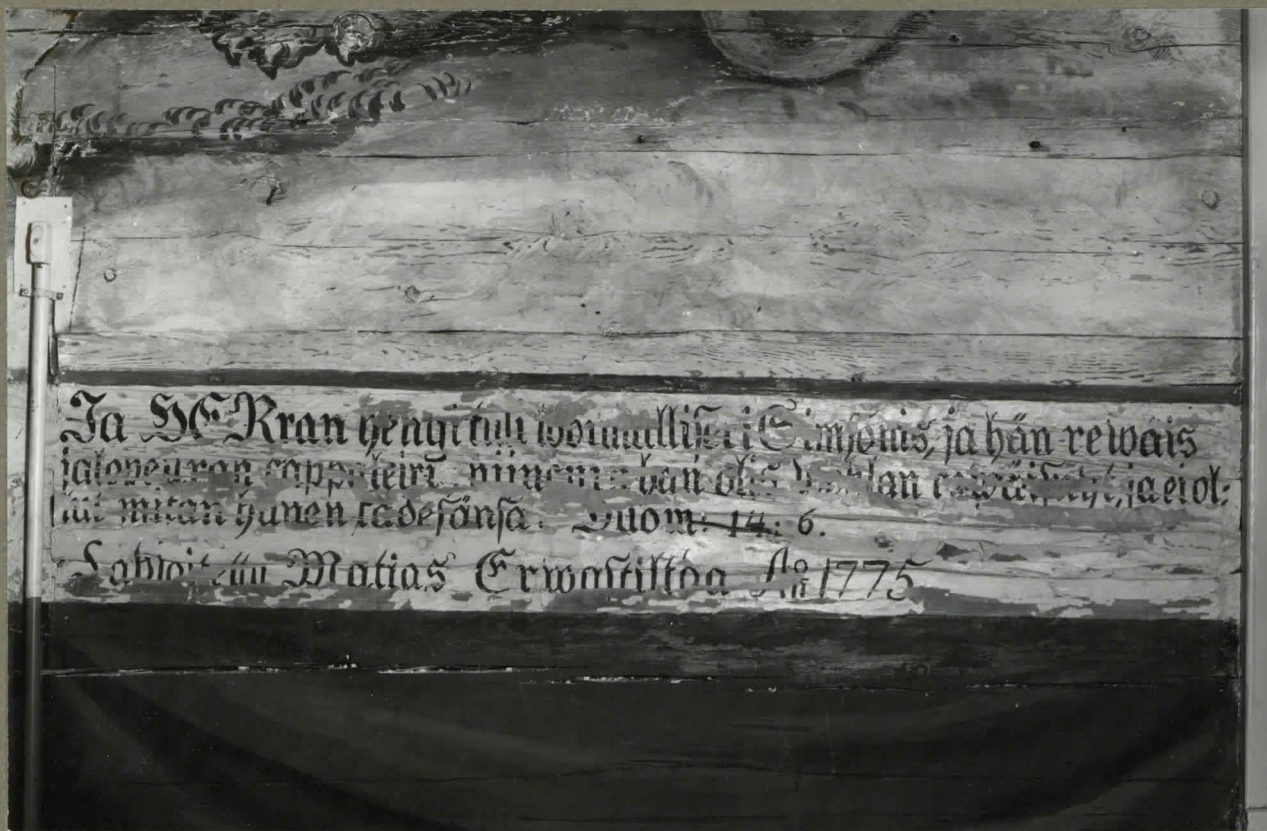 Ja HERran hengi tuli woimallisexi Simsonis, ja hän rewais
jalopeuran cappaleixi, niincuin hän olis ja ei ol:
lut mitän hänen kädesänsä. Duom: 14: 6.
Lahjoitettu Matias Erwastilda Ao 1775